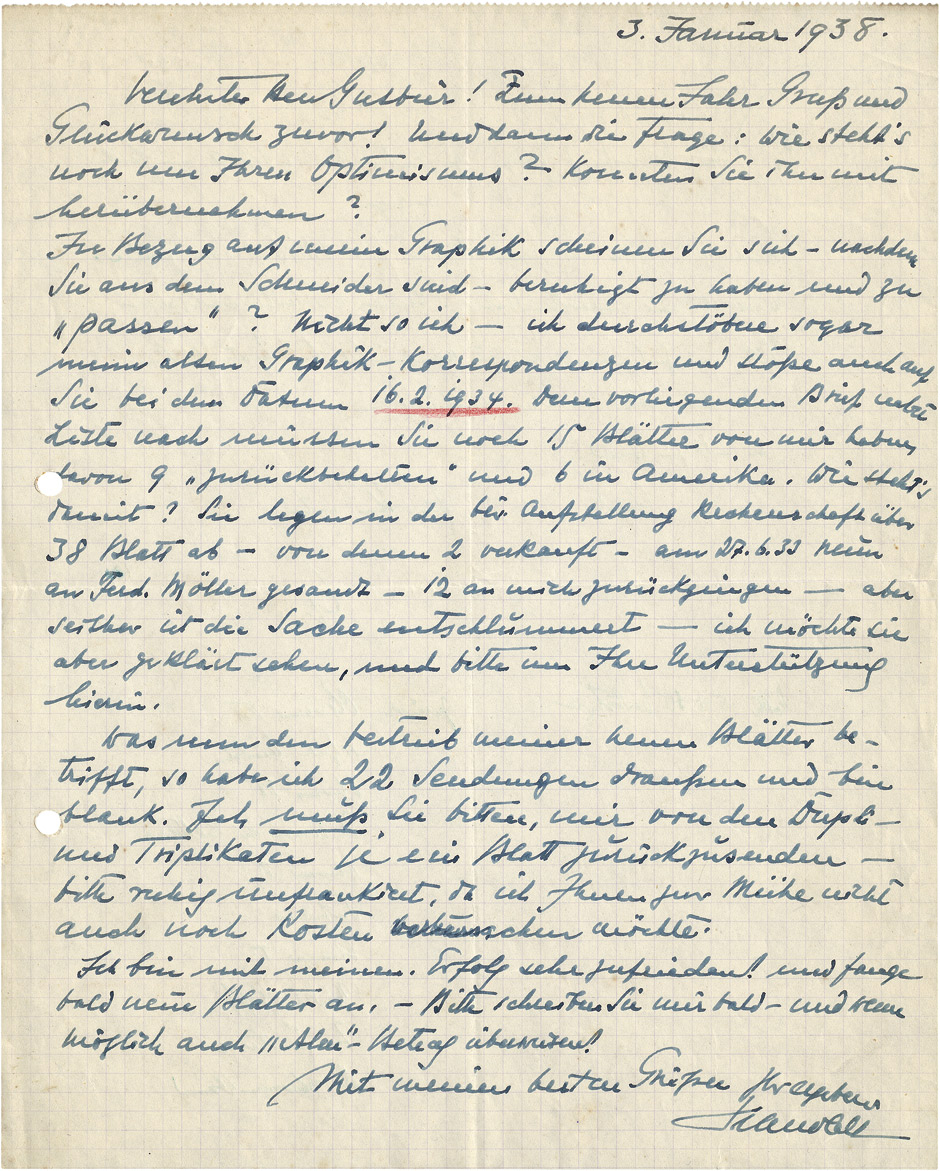 3. Januar 1938.
Verehrter Herr Gutbier! Zum neuen Jahr Gruß und
Glückwunsch zuvor! Und dann die Frage: wie steht's
noch um Ihren Optimismus? Konnten Sie ihn mit
herübernehmen?
In Bezug auf meine Graphik scheinen Sie sich – nachdem
Sie aus dem Schneider sind – beruhigt zu haben und zu
„passen"? Nicht so ich – ich durchstöbere sogar
meine alten Graphik-Korrespondenzen und stoße auch auf
Sie bei dem Datum 16.2.1934. Dem vorliegenden Brief nebst
Liste nach müssen Sie noch 15 Blätter von mir haben,
davon 9 „zurückbehalten" und 6 in Amerika. Wie steht's
damit? Sie legen in der Aufstellung Rechenschaft über
38 Blatt ab – von denen 2 verkauft – am 27.6.33 neun
an Ferd. Möller gesandt – 12 an mich zurückgingen – aber
seither ist die Sache entschlummert – ich möchte sie
aber geklärt sehen, und bitte um Ihre Unterstützung
hierin.
Was nun den Vertrieb meiner neuen Blätter be-
trifft, so habe ich 22 Sendungen draußen und bin
blank. Ich muß Sie bitten, mir von den Dupli-
und Triplikaten je ein Blatt zurückzusenden –
bitte ruhig unfrankiert, da ich Ihnen zur Mühe nicht
auch noch Kosten möchte.
Ich bin mit meinem Erfolg sehr zufrieden! und fange
bald neue Blätter an. – Bitte schreiben Sie mir bald – und wenn
möglich auch Betrag überweisen!
Mit meinen besten Grüßen Ihr ergebener